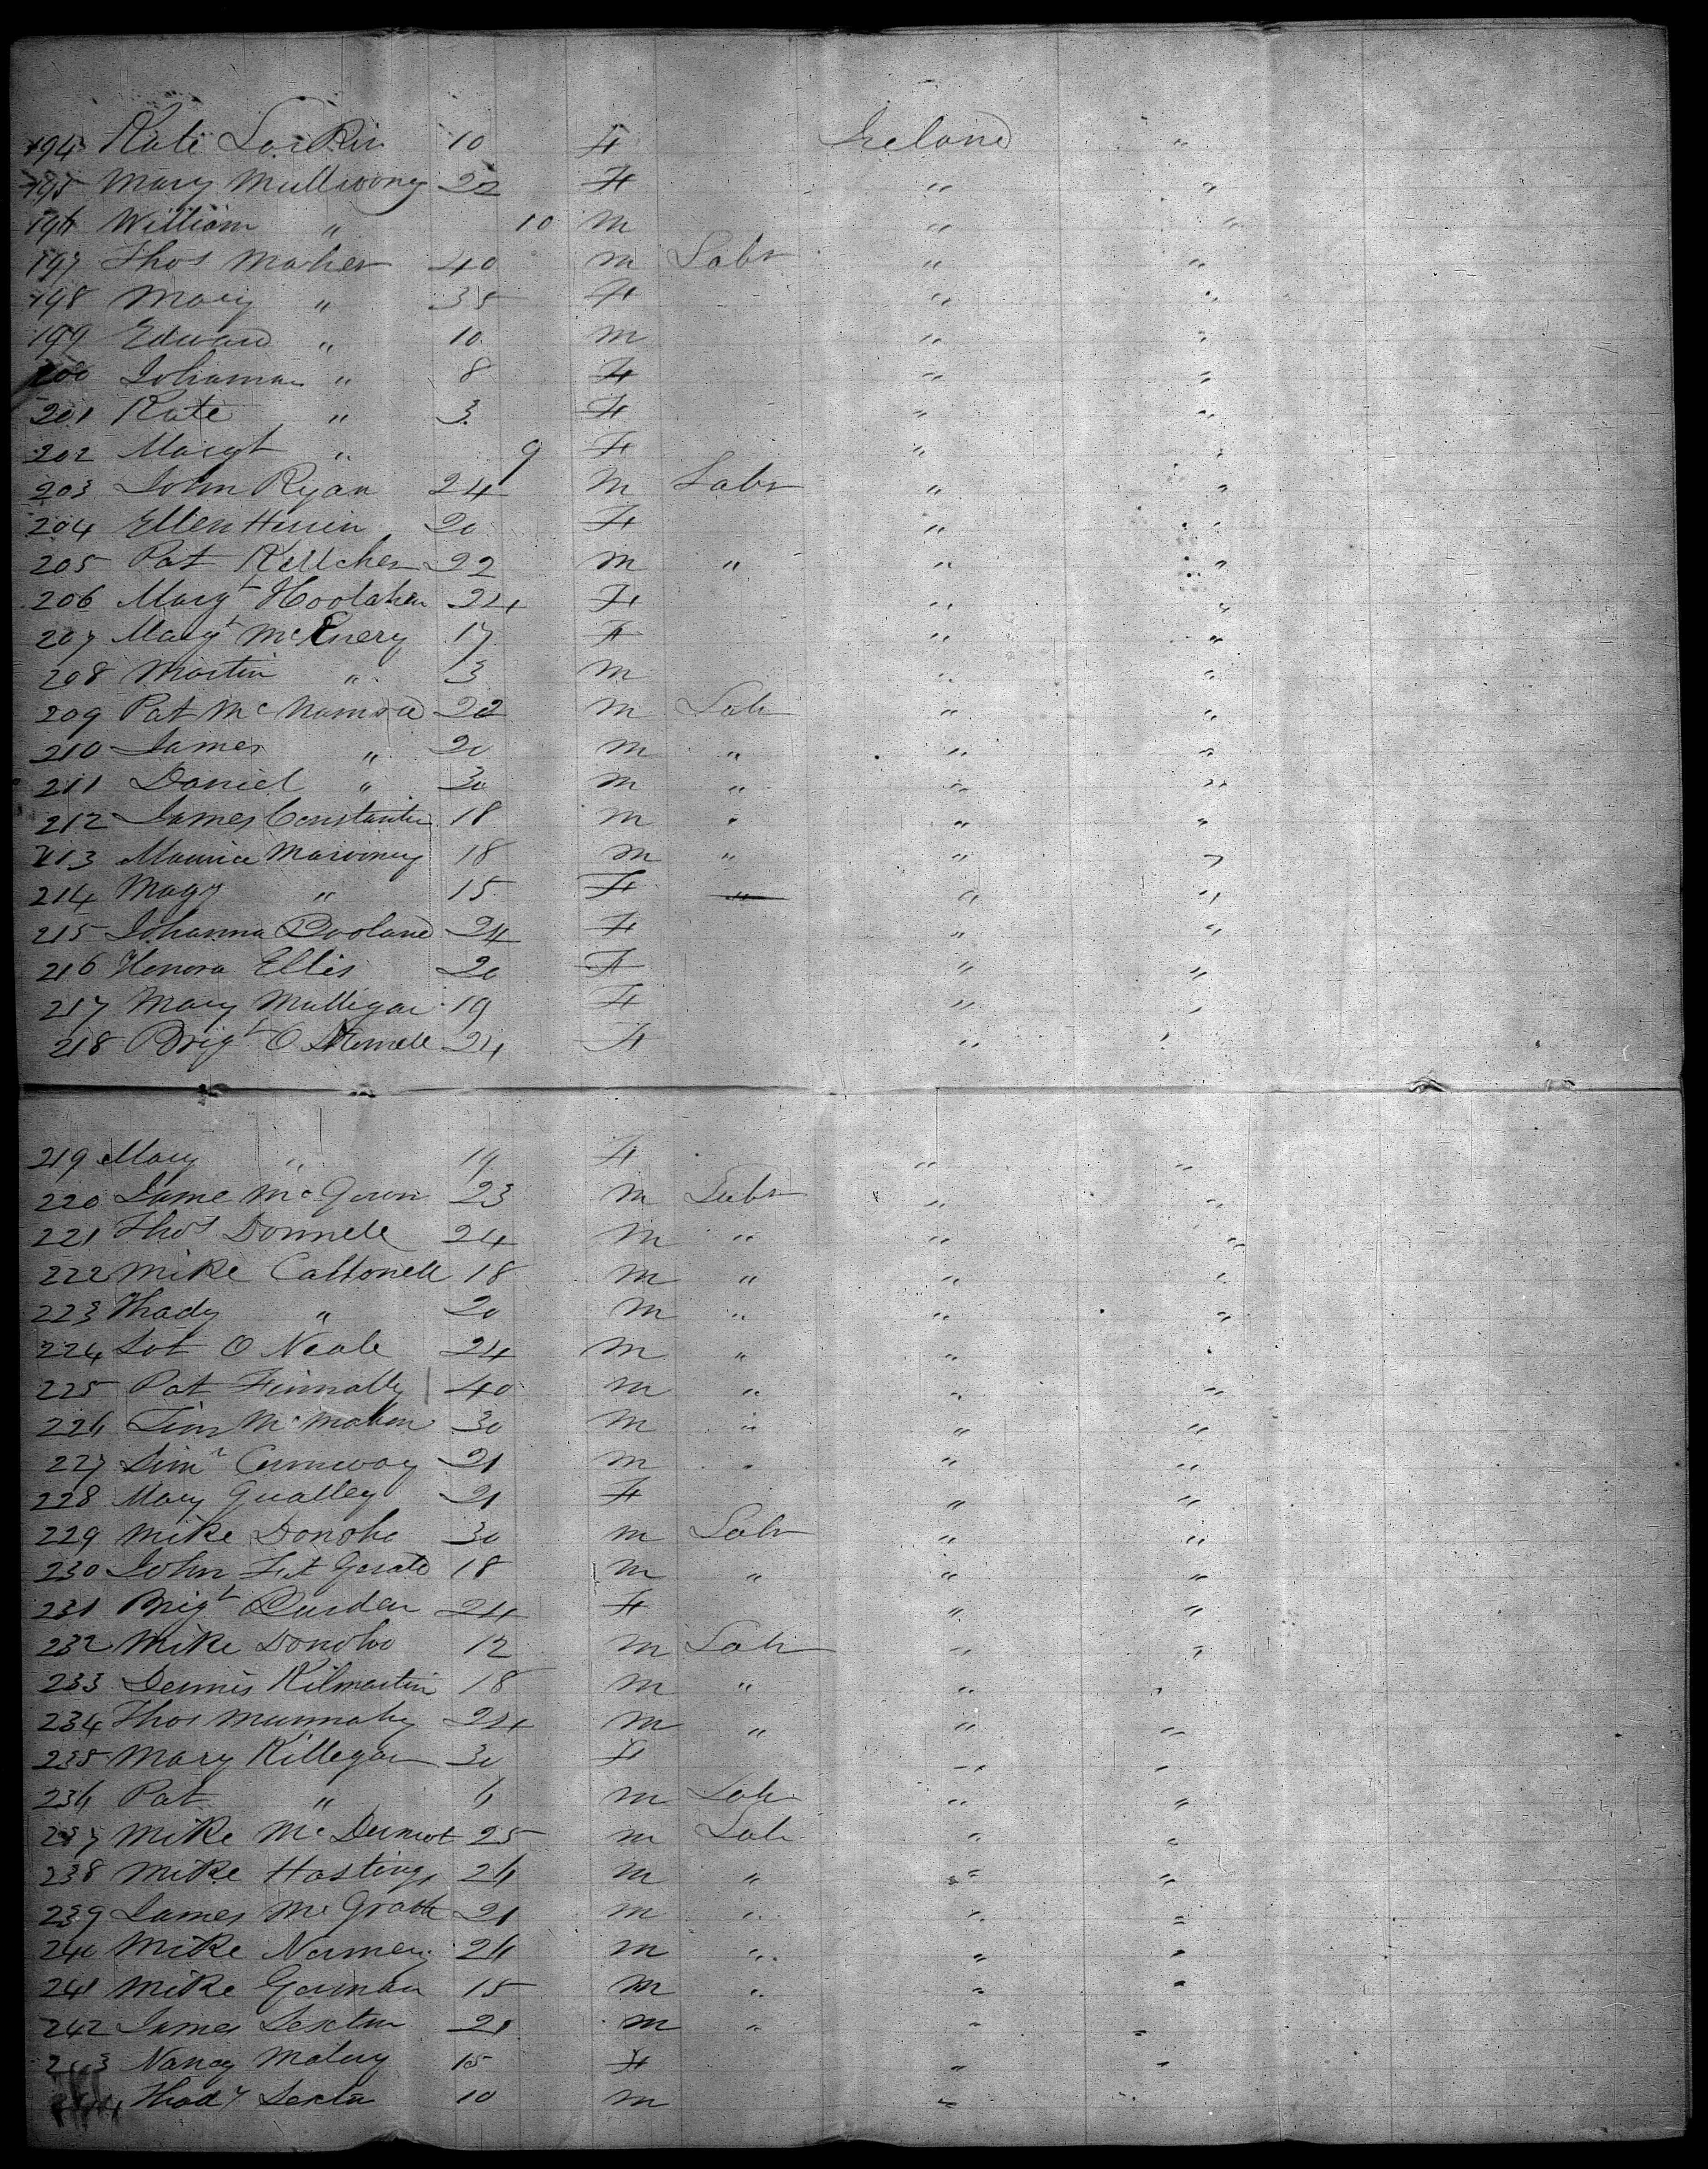 194 Kate Larkin 10 F Ireland "
195 Mary Mullwony 22 F " "
196 William " 10 M " "
197 Thos Maher 40 M Labr " "
198 Mary " 35 F " "
199 Edward " 10 M " "
200 Johanna " 8 F " "
201 Kate " 3 F " "
202 Margt " 9 F " "
203 John Ryan 24 M Labr " "
204 Ellen 20 F " "
205 Pat Kellcher 22 M " " "
206 Margt Hoolahan 24 F " "
207 Margt McEnery 17 F " "
208 Martin " 3 M " "
209 Pat McNamara 22 M Lab " "
210 James " 20 M " " "
211 Daniel " 30 M " " "
212 James Constantin 18 M " " "
213 Maurice Maroney 18 M " " "
214 Magy " 15 F " " "
215 Johanna Booland 24 F " "
216 Honora Ellis 20 F " "
217 Mary Mulligan 19 F " "
218 Brigt O 24 F " "
219 Mary " 19 F " "
220 Jame McGovern 23 M Labr " "
221 Thos Donnell 24 M " " "
222 Mike 18 M " " "
223 Thady " 20 M " " "
224 O Neale 24 M " " "
225 Pat Finnally 40 M " " "
226 Tim McMahon 30 M " " "
227 Conway 21 M " " "
228 Mary Qualley 21 F " "
229 Mike Donoho 30 M Labr " "
230 John Fit Gerald 18 M " " "
231 Brigt Burden 24 F " "
232 Mike Donoho 12 M Lab " "
233 Dennis Kilmartin 18 M " " "
234 Thos Munnaly 24 M " " "
235 Mary Killegan 30 F " "
236 Pat " 6 M Lab " "
237 Mike McDermot 25 M Lab " "
238 Mike Hastings 26 M " " "
239 James McGrath 21 M " " "
240 Mike 26 M " " "
241 Mike Gorman 15 M " " "
242 James Sexton 21 M " " "
243 Nancy Malury 15 F " "
Thady Sexton 10 M "